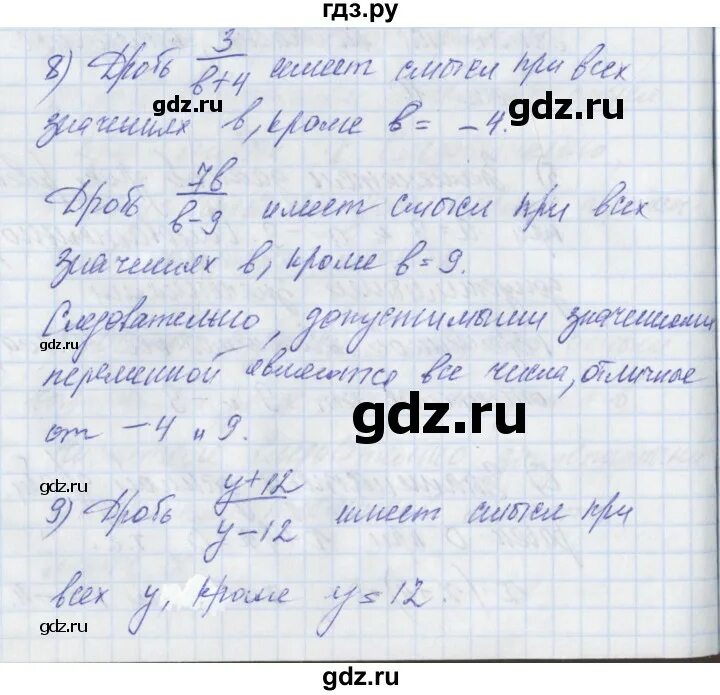 гдз.ру
8) Дробь 3/в+4 имеет смысл при всех
gdz.ru
gdz.ru
значениях в, кроме в = -4.
Дробь 7в/в-9 имеет смысл при всех
значениях в, кроме в = 9.
Следовательно, допустимыми значениями
gdz.ru
переменной являются все числа, отличные
от -4 и 9.
gdz.ru
gdz.ru
9) Дробь y+12/y-12 имеет смысл при
всех y, кроме y = 12.
gdz.ru
gdz.ru
gdz.ru